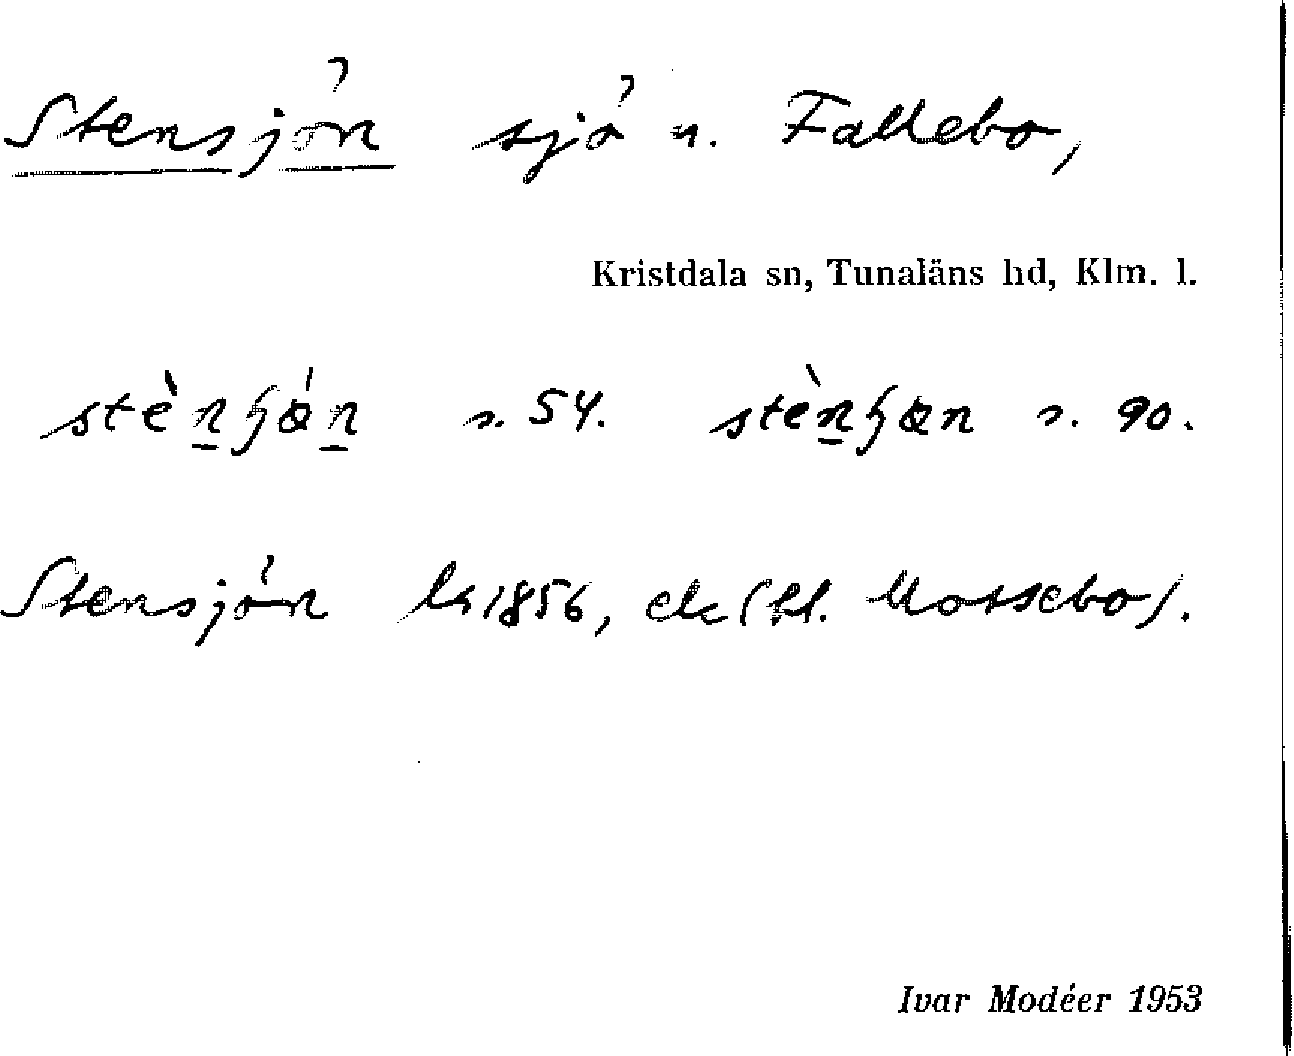 Stensjön sjö n. Fallebo,
Kristdala sn, Tunaläns hd, Klm. l.
s. 54. s. 90.
Stensjön ls 1856, ek (bl. Mossebo).
Ivar Modéer 1953